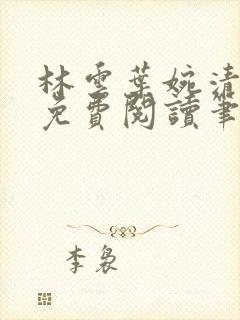 林雲葉婉清
免費閱讀筆
李裊